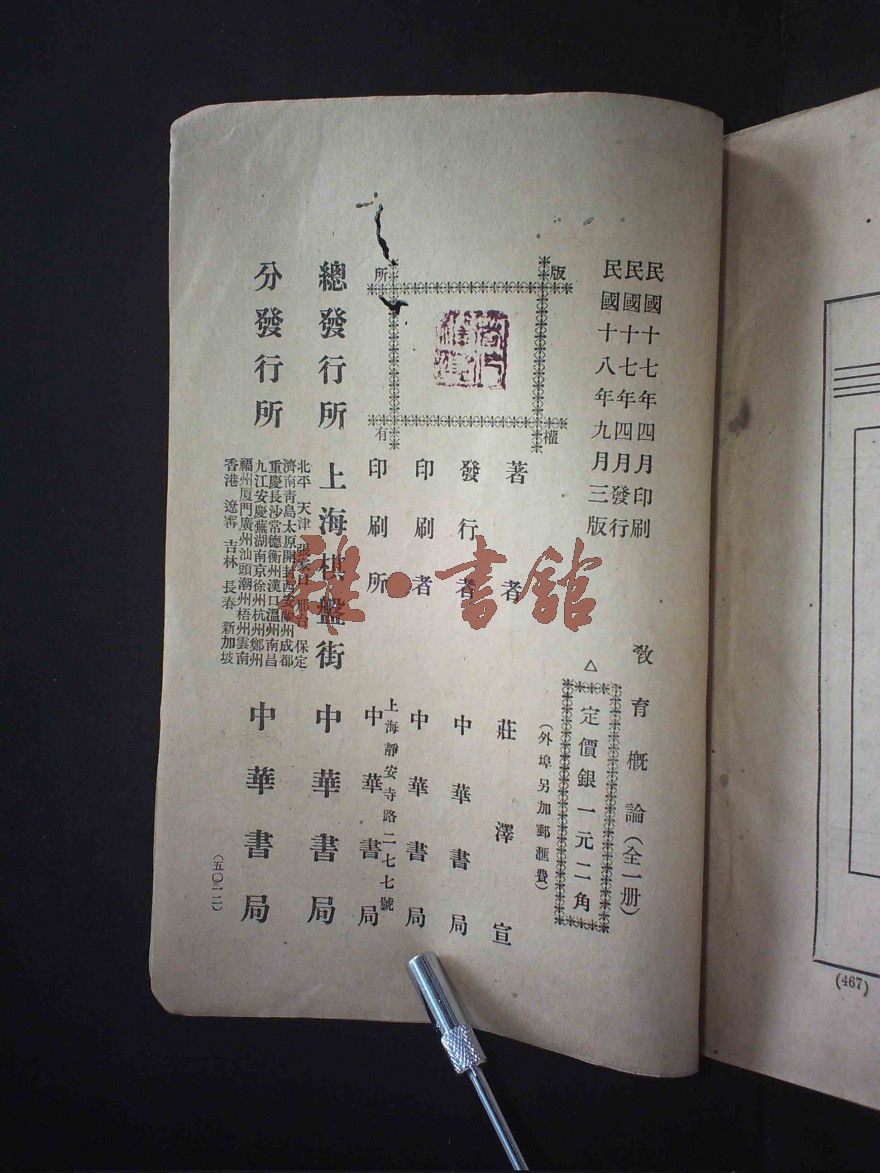 民國十七年四月印刷
民國十七年四月發行
民國十八年九月三版
教育概論（全一册）
△定價銀一元二角
（外埠另加郵滙費）
版權所有
著者 莊澤宣
發行者 中華書局
印刷者 中華書局
上海靜安寺路二七七號
印刷所 中華書局
總發行所 上海棋盤街 中華書局
分發行所 中華書局
北平 天津 保定
濟南青島太原開封西安蘭州成都
重慶長沙常德衡州漢口溫州南昌
九江安慶蕪湖南京徐州杭州鄭州
福州厦門廣州汕頭潮州梧州雲南
香港 遼寧 吉林 長春 新加坡
（五〇一二）
雜·書館
(467)